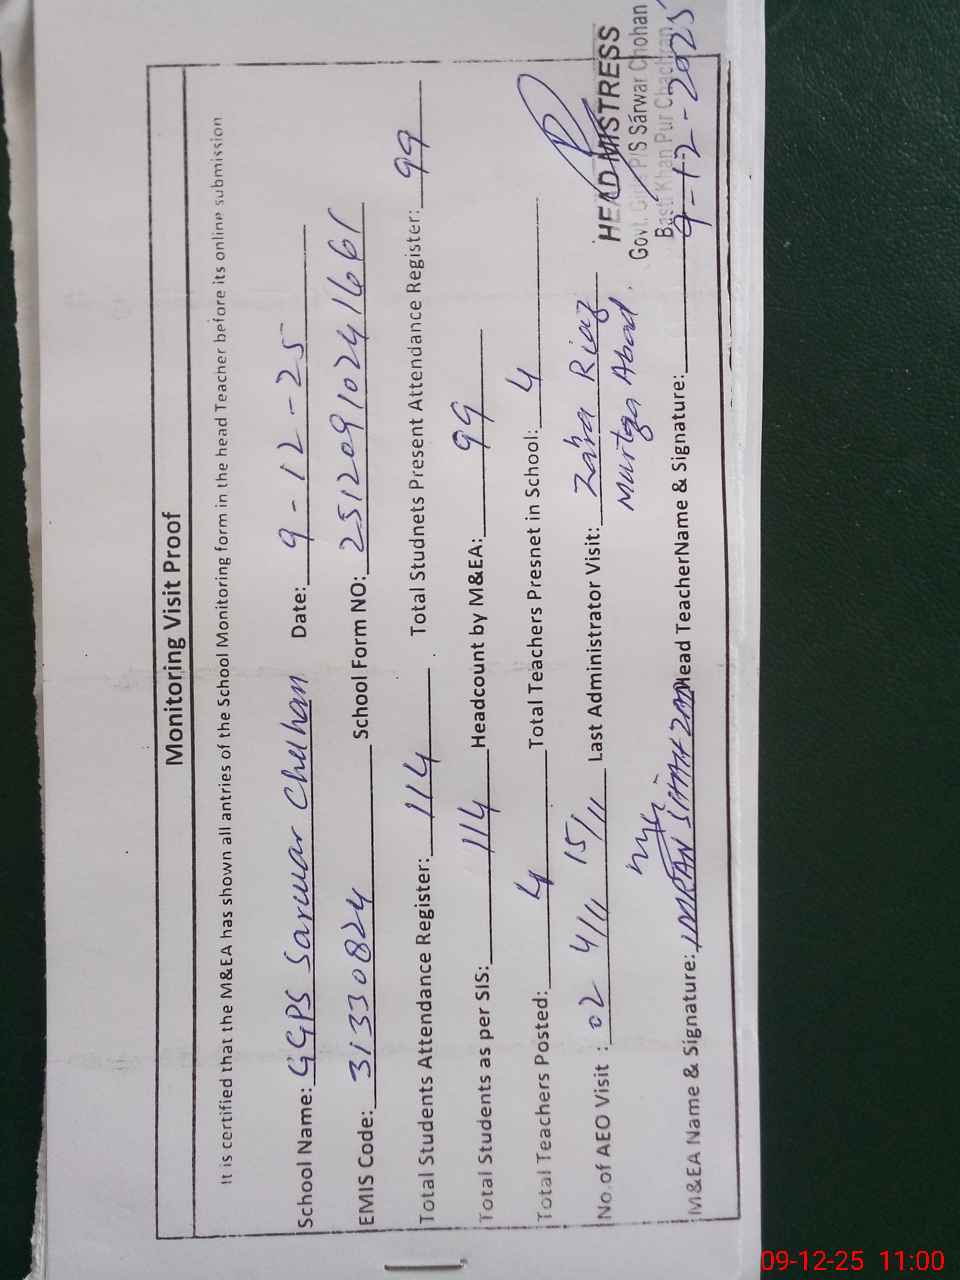 Monitoring Visit Proof
It is certified that the M&EA has shown all antries of the School Monitoring form in the head Teacher before its online submission
School Name: GGPS Sarwar Chohan Date: 9-12-25
EMIS Code: 31330824 School Form NO: 25120910241661
Total Students Attendance Register: 114 Total Studnets Present Attendance Register: 99
Total Students as per SIS: 114 Headcount by M&EA: 99
Total Teachers Posted: 4 Total Teachers Presnet in School: 4
No.of AEO Visit : 02 4/11 15/11 Last Administrator Visit: Zahra Riaz
Murtza Abad.
M&EA Name & Signature: IMRAN SHAHZAD Head TeacherName & Signature:
HEAD MISTRESS
Govt. Girls P/S Sarwar Chohan
Basti Khan Pur Chachran
9-12-2025
09-12-25 11:00